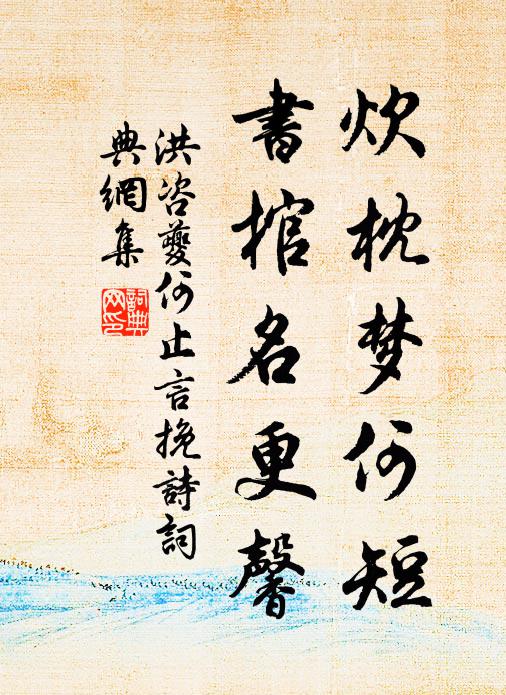 炊枕梦何短
書棺名更馨
洪咨夔何止言挽詩詞
典網集
詞典
网印